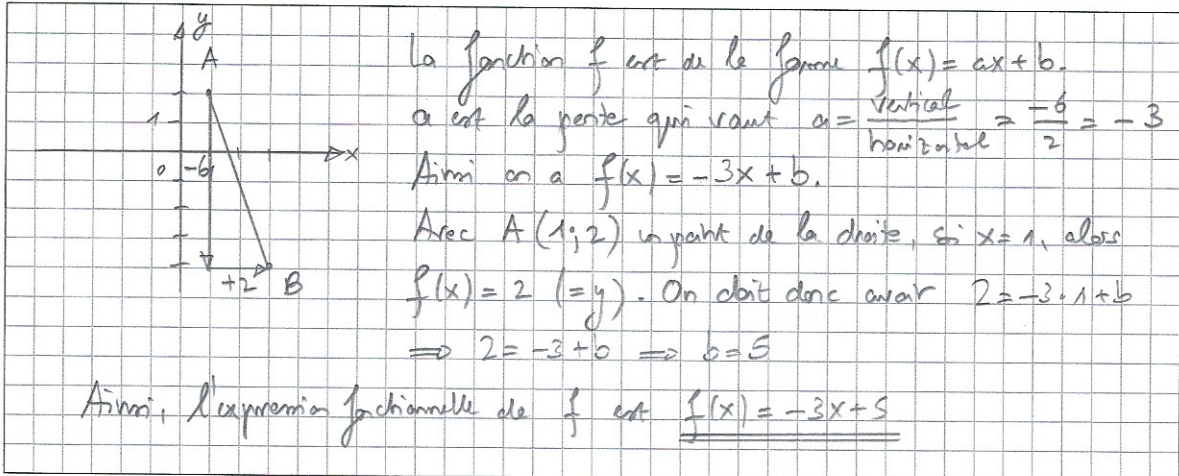 y
A
1
x
0
-6
+2 B
La fonction f est de la forme f(x) = ax + b.
a est la pente qui vaut a = vertical / horizontal = -6 / 2 = -3
Ainsi on a f(x) = -3x + b.
Avec A (1;2) un point de la droite, si x = 1, alors
f(x) = 2 (=y). On doit donc avoir 2 = -3·1 + b
⇒ 2 = -3 + b ⇒ b = 5
Ainsi, l'expression fonctionnelle de f est f(x) = -3x + 5